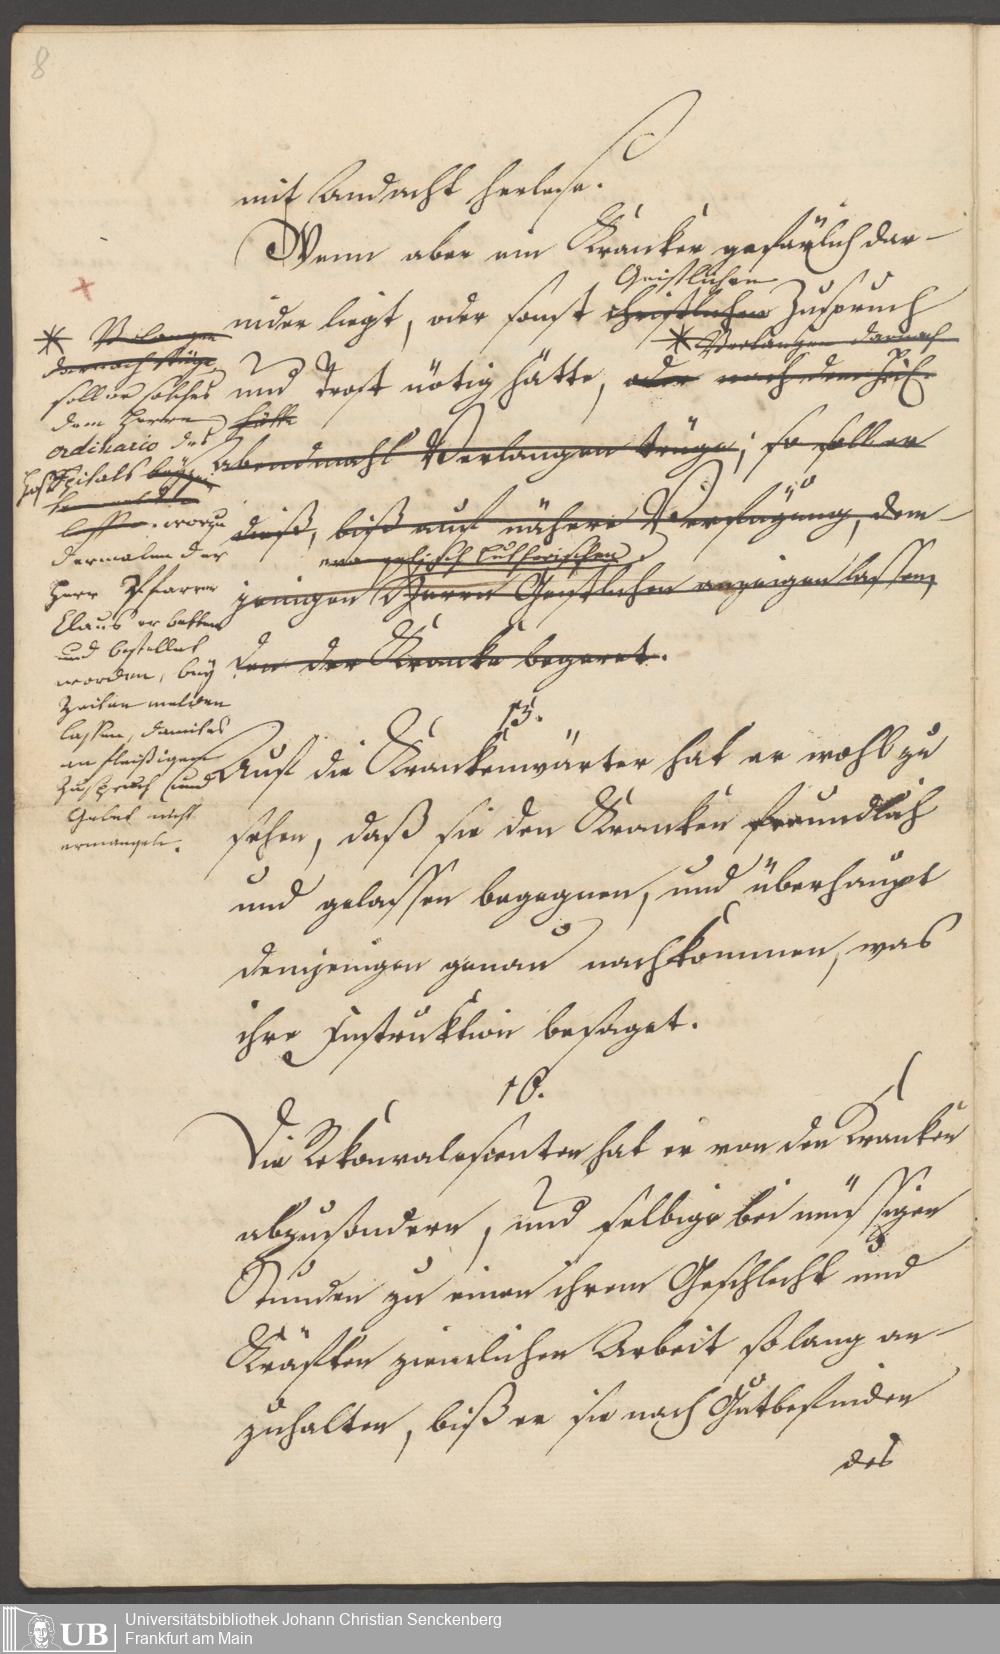 8
mit Andacht herlese.
Wenn aber ein Kranker gefärlich dar-
nider liegt, oder sonst christlichen Zuspruch
Geistlichen
* Verlangen darnach
und Trost nötig hätte, oder nach dem Heil.
hätte
abendmahl Verlangen trüge; so soll er
dieß, biß auf nähere Verfügung, dem-
evangelisch Lutherischen
jenigen Herrn Geistlichen anzeigen lassen,
den der Kranke begeret.
* Verlangen
darnach trüge,
soll er solches
dem Herrn
ordinario des
Hospitals
lassen. worzu
dermalen der
Herr Pfarrer
Claus erbetten
und bestellet
worden, bey
Zeiten melden
lassen, damit es
an fleißigem
Zuspruch und
Gebet nicht
ermangele.
15.
Auf die Krankenwärter hat er wohl zu
sehen, daß sie den Kranken freundlich
und gelassen begegnen, und überhaupt
demjenigen genau nachkommen, was
ihre Instruktion besaget.
16.
Die Rekonvalescenten hat er von den Kranken
abzusondern, und selbige bei müssigen
Stunden zu einer ihrem Geschlecht und
Kräften ziemlichen Arbeit so lang an-
zuhalten, biß er sie nach Gutbefinden
des
UB
Universitätsbibliothek Johann Christian Senckenberg
Frankfurt am Main